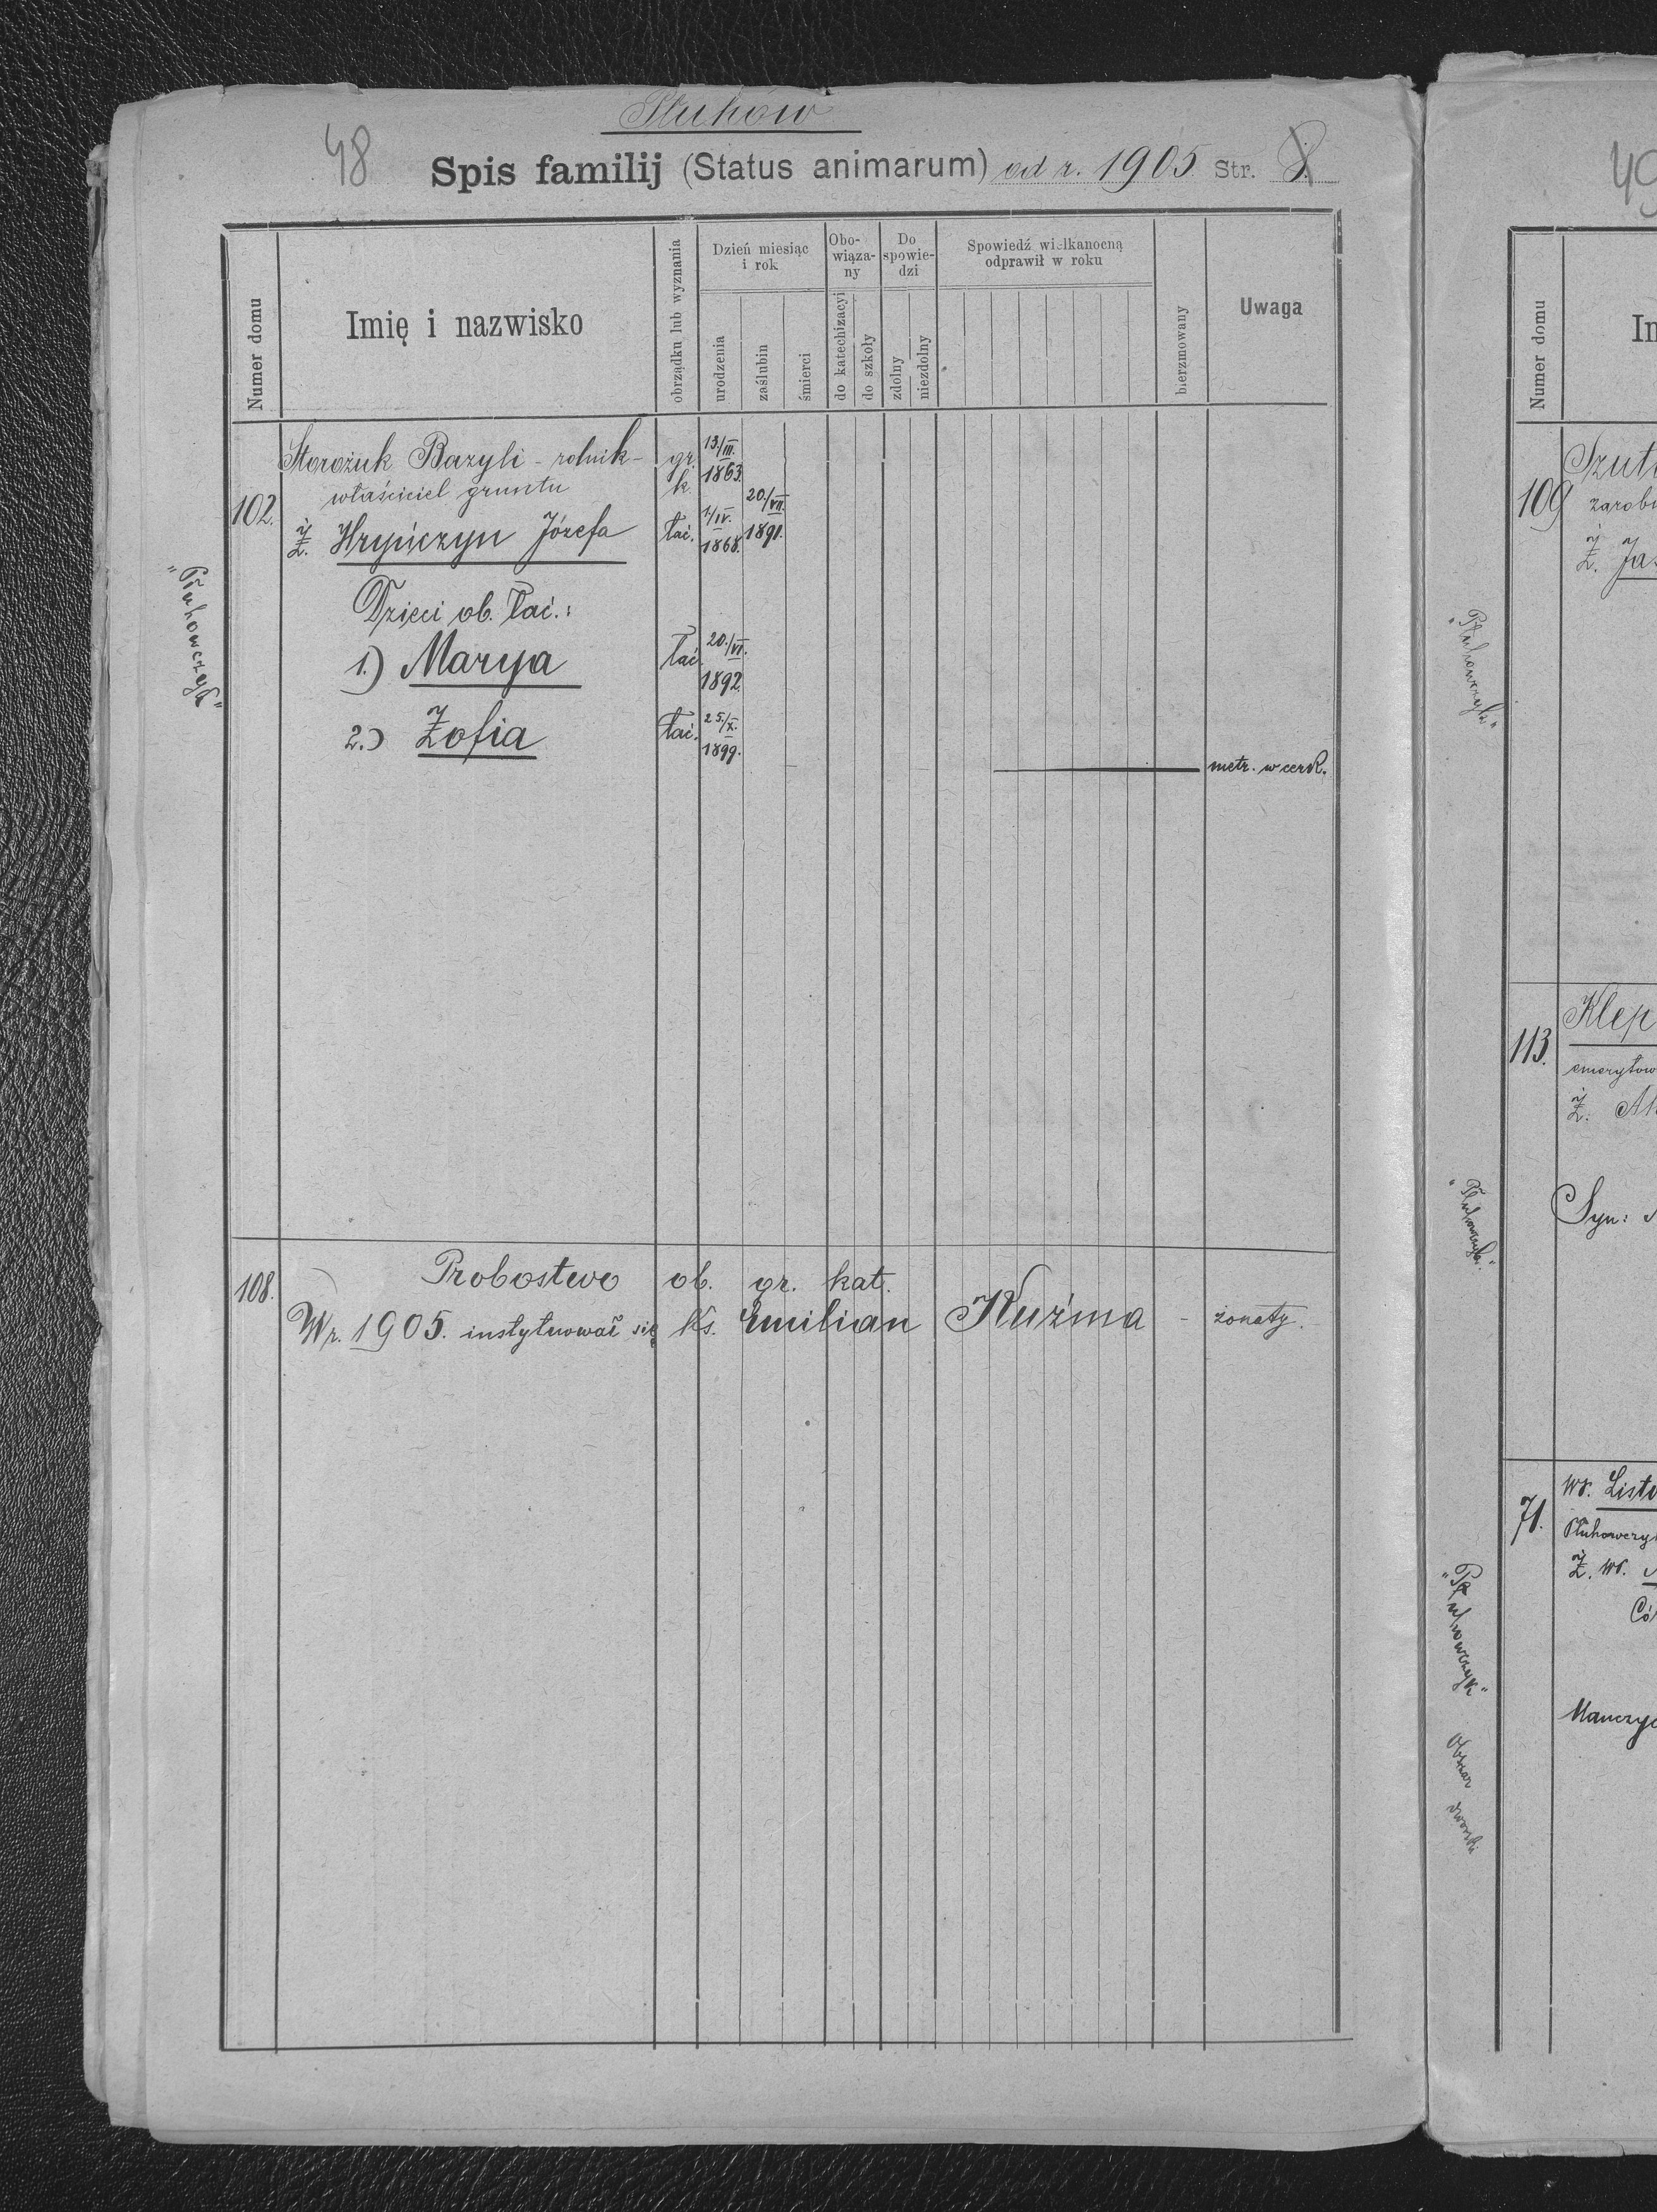 Płuhów
48 Spis familij (Status animarum) od r. 1905 Str. 8.
Numer domu
Imię i nazwisko
obrządku lub wyznania
Dzień miesiąc i rok
urodzenia
zaślubin
śmierci
Obo-
wiąza-
ny
do katechizacyi
do szkoły
Do
spowie-
dzi
zdolny
niezdolny
Spowiedź wielkanocną
odprawił w roku
bierzmowany
Uwaga
"Płuhowczyk"
102. Storożuk Bazyli - rolnik - gr. k. 13./III. 1863.
właściciel gruntu
Ż. Hryńczyn Józefa łać. 1/IV. 1868. 20./VII. 1891.
Dzieci ob. łac.:
1.) Marya łać. 20./VI. 1892.
2.) Zofia łać. 25./X. 1899. metr. w cerk.
108. Probostwo ob. gr. kat.
W r. 1905. instytuował się Ks. Emilian Kuźma - żonaty.
49
Numer domu
109
"Płuhowczyk"
zarob
Ż.
113.
Klep
emerytow
Ż.
"Płuhowczyk"
Syn:
71.
Wł. List
Płuhowczy
Ż. wł.
"Płuhowczyk"
Obszar dworski